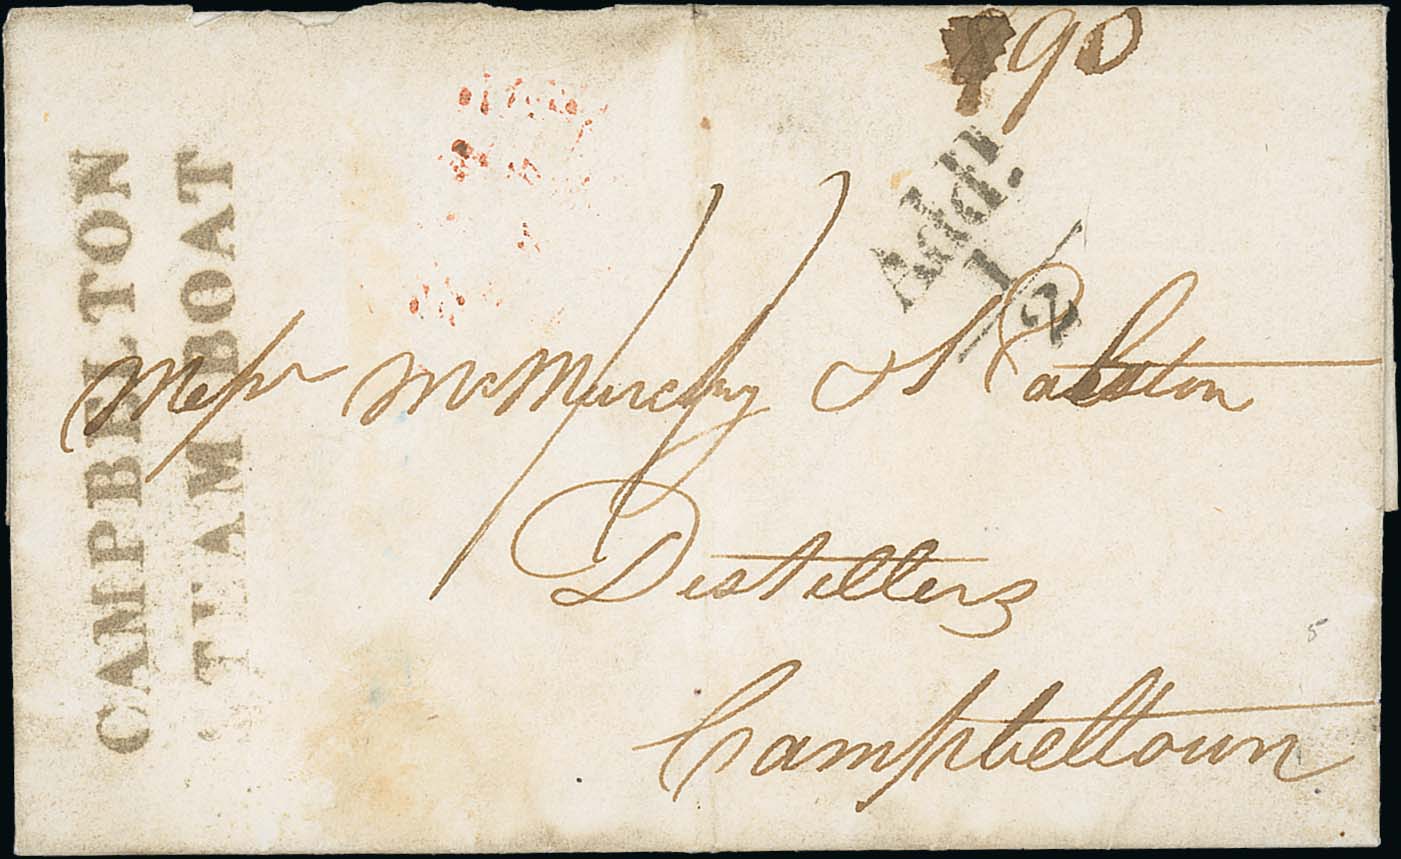 CAMPBELTON
STEAM BOAT
90
Add!
1/2
Messrs McMurchy & Ralston
Distillers
Campbeltown
5